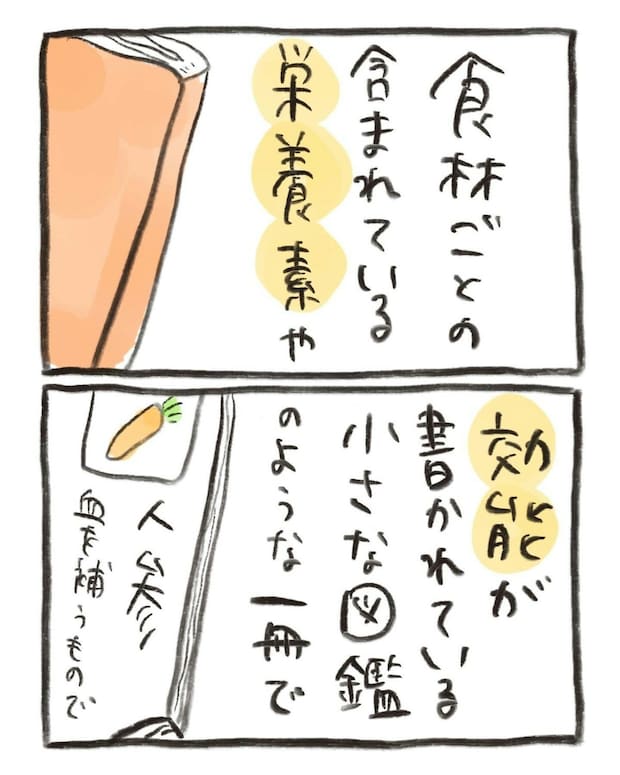 食材ごとの
含まれている
栄養素や
効能が
書かれている
小さな図鑑
のような一冊で
人参
血を補うもので